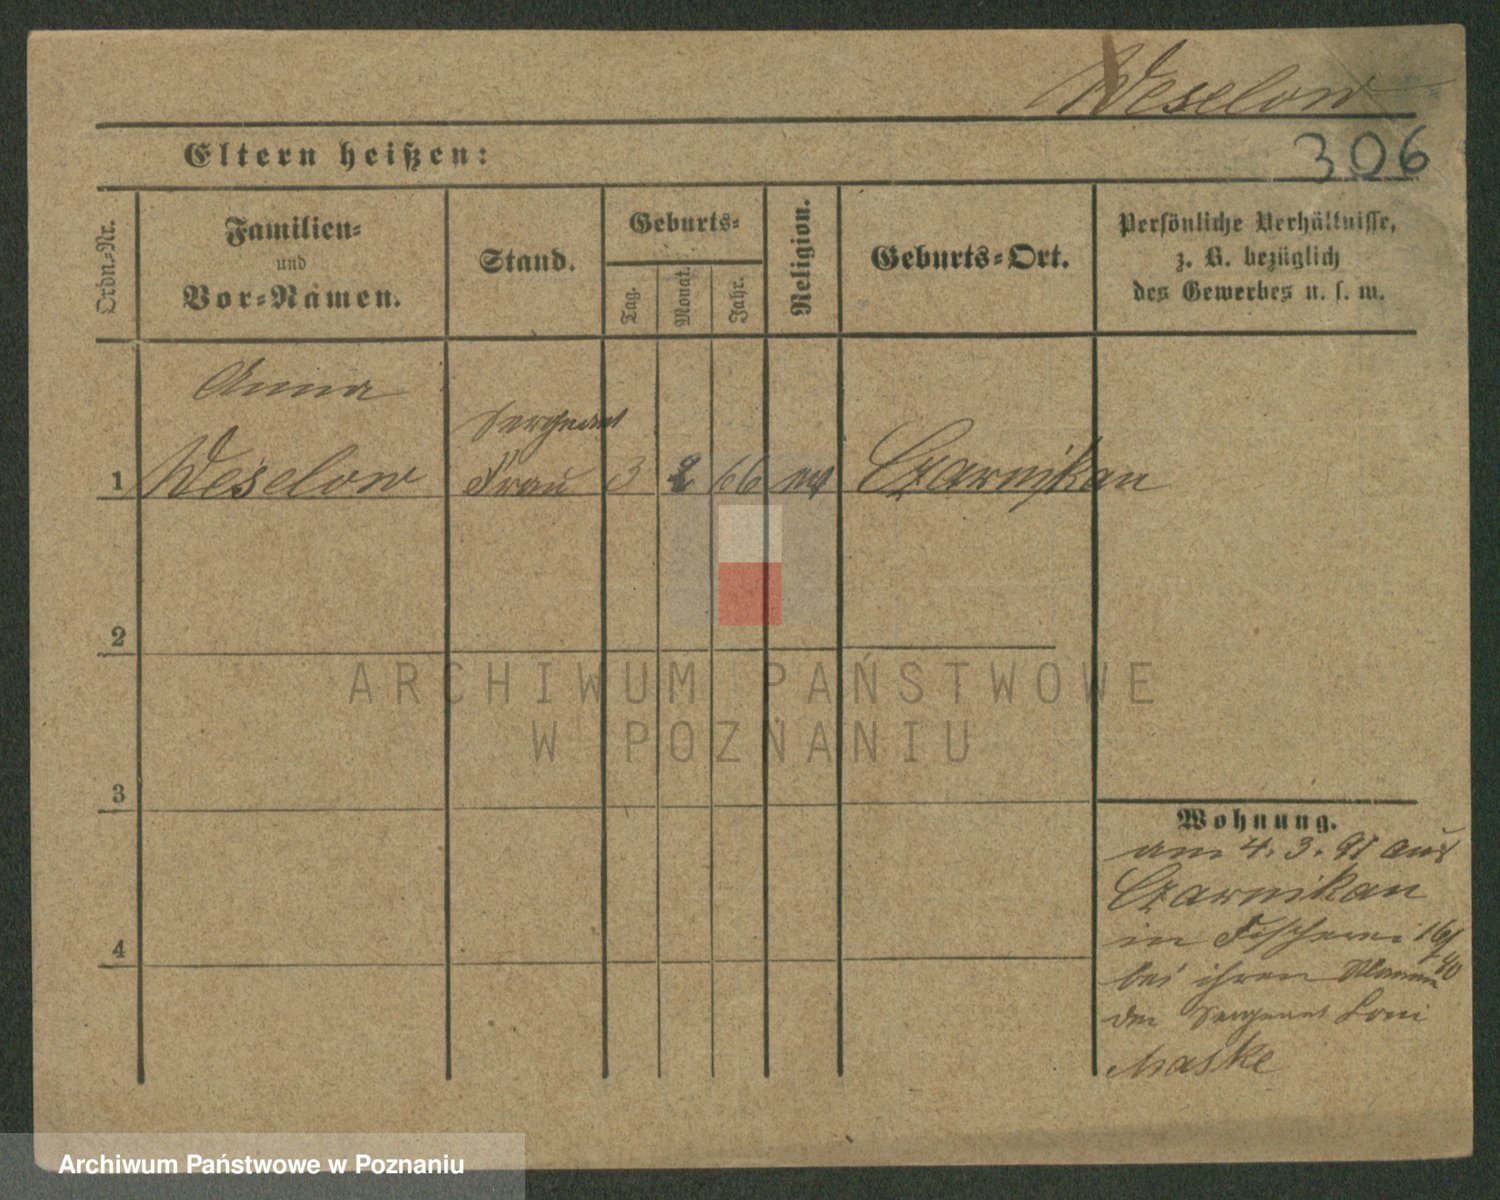 Weselow
Eltern heißen:
306
Ordn.-Nr.
Familien-
und
Vor-Namen.
Stand.
Geburts-
Tag.
Monat.
Jahr.
Religion.
Geburts-Ort.
Persönliche Verhältnisse,
z. B. bezüglich
des Gewerbes u. s. w.
Anna
Sergeant
1 Weselow Frau 3 2 66 ev Czarnikau
2
3
4
Wohnung.
am 4. 3. 91 aus
Czarnikau
in Fischerei 16/
bei ihren Manne 40
der Sergeant
Maske
ARCHIWUM PAŃSTWOWE
W POZNANIU
Archiwum Państwowe w Poznaniu